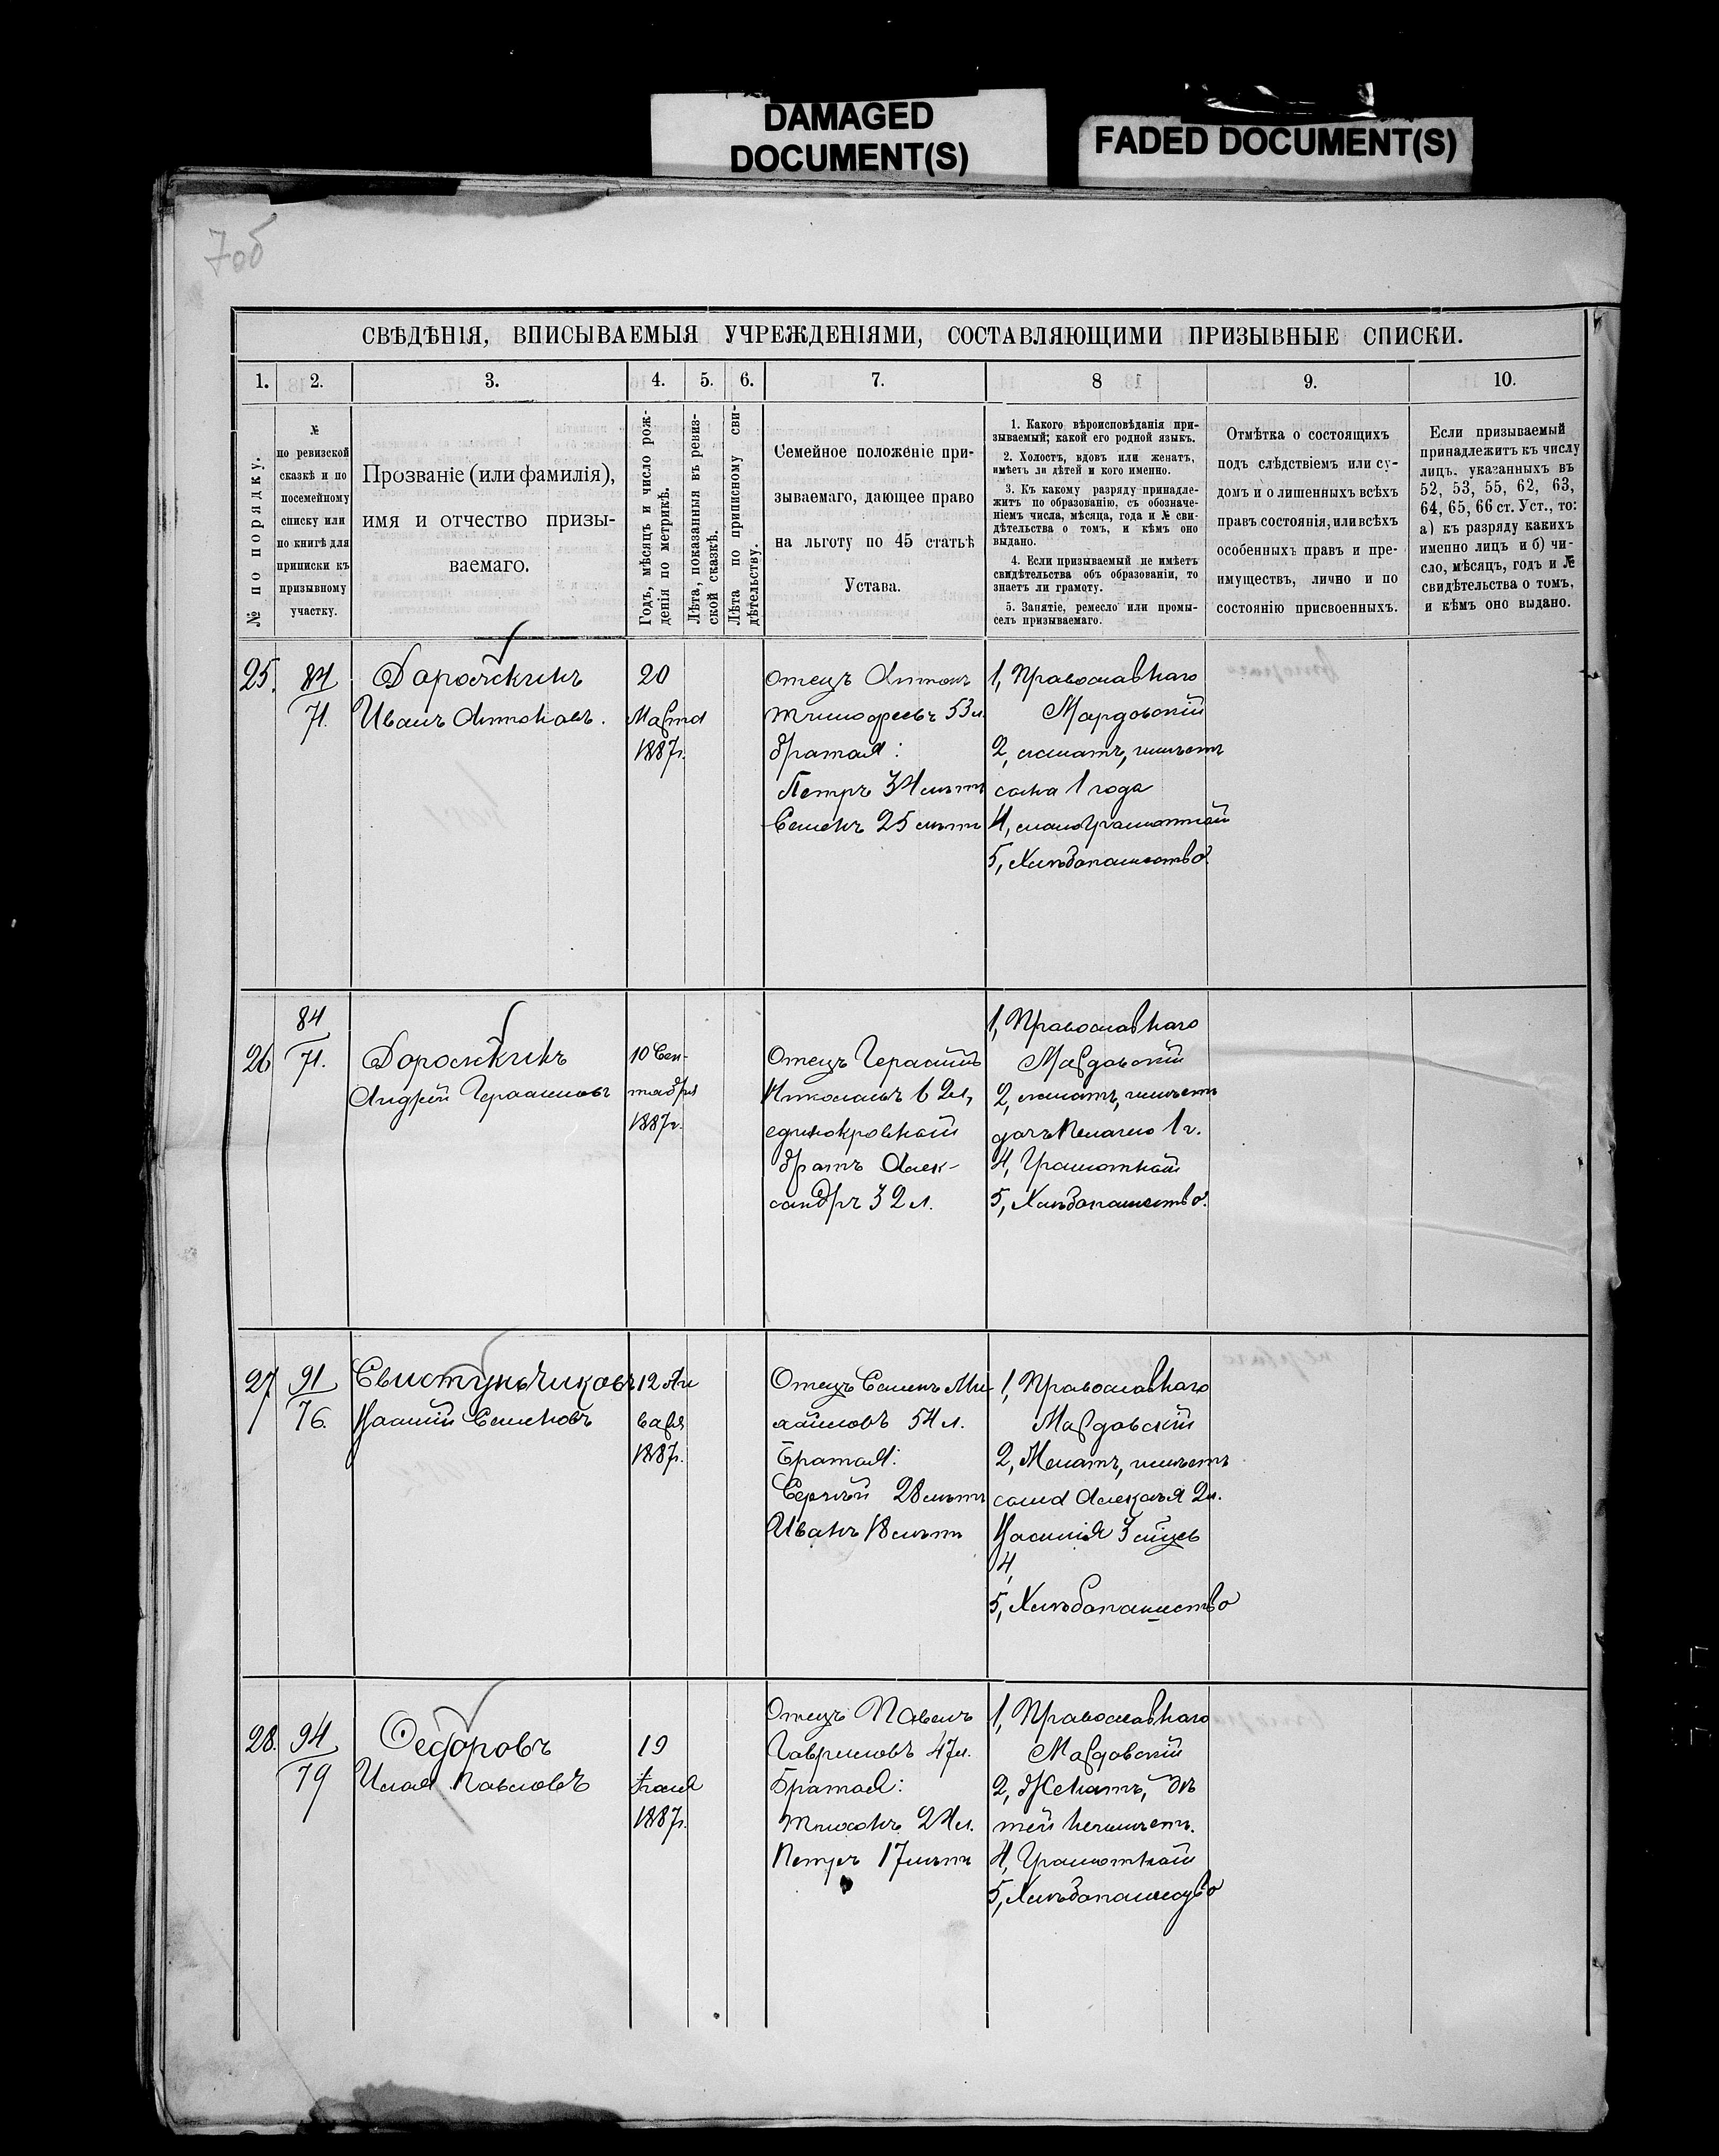 DAMAGED
DOCUMENT(S)
FADED DOCUMENT(S)
7об
СВѢДѢНІЯ, ВПИСЫВАЕМЫЯ УЧРЕЖДЕНІЯМИ, СОСТАВЛЯЮЩИМИ ПРИЗЫВНЫЕ СПИСКИ.
1. 2. 3. 4. 5. 6. 7. 8 9. 10.
№ по порядку.
№
по ревизской
сказкѣ и по
посемейному
списку или
по книгѣ для
приписки къ
призывному
участку.
Прозваніе (или фамилія),
имя и отчество призы-
ваемаго.
Годъ, мѣсяцъ и число рож-
денія по метрикѣ.
Лѣта, показанныя въ ревиз-
ской сказкѣ.
Лѣта по приписному сви-
дѣтельству.
Семейное положеніе при-
зываемаго, дающее право
на льготу по 45 статьѣ
Устава.
1. Какого вѣроисповѣданія при-
зываемый; какой его родной языкъ.
2. Холостъ, вдовъ или женатъ,
имѣетъ ли дѣтей и кого именно.
3. Къ какому разряду принадле-
житъ по образованію, съ обозначе-
ніемъ числа, мѣсяца, года и № сви-
дѣтельства о томъ, и кѣмъ оно
выдано.
4. Если призываемый не имѣетъ
свидѣтельства объ образованіи, то
знаетъ ли грамоту.
5. Занятіе, ремесло или промы-
селъ призываемаго.
Отмѣтка о состоящихъ
подъ слѣдствіемъ или су-
домъ и о лишенныхъ всѣхъ
правъ состоянія, или всѣхъ
особенныхъ правъ и пре-
имуществъ, лично и по
состоянію присвоенныхъ.
Если призываемый
принадлежитъ къ числу
лицъ, указанныхъ въ
52, 53, 55, 62, 63,
64, 65, 66 ст. Уст., то:
а) къ разряду какихъ
именно лицъ и б) чи-
сло, мѣсяцъ, годъ и №
свидѣтельства о томъ,
и кѣмъ оно выдано.
25.
84
71.
Иванъ Антоновъ.
20
Марта
1887г.
Отецъ Антонъ
Тимофеевъ 53л.
братья:
Петръ 34 лѣтъ
Семенъ 25 лѣтъ
1, Православнаго
Мордовскій
2, женатъ, имѣетъ
сына 1 года
4, малограмотный
5, Хлѣбопашество.
26
84
71.
Дорожкинъ
Андрей Герасимовъ
10 Сен-
тября
1887г.
Отецъ Герасимъ
Николаевъ 62л,
единокровный
братъ Алек-
сандръ 32л.
1, Православнаго
Мордовскій
2, женатъ, имѣетъ
дочь Пелагею 1г.
4, Грамотный
5, Хлѣбопашество.
27
91
76.
Свистунчиковъ
Василій Семеновъ
12 Ян
варя
1887г.
Отецъ Семенъ Ми
хайловъ 54л.
Братья:
Сергѣй 28 лѣтъ
Иванъ 18 лѣтъ
1, Православнаго
Мордовскій
2, Женатъ, имѣетъ
сына Алексѣя 2л.
Василія 3 мѣсяц
4,
5, Хлѣбопашество
28.
94
79
Федоровъ
Илья Павловъ
19
Іюля
1887г.
Отецъ Павелъ
Гавриловъ 47л.
Братья:
Тихонъ 24л.
Петръ 17 лѣтъ
1, Православнаго
Мордовскій
2, Женатъ, дѣ
тей неимѣетъ.
4, Грамотный
5, Хлѣбопашество